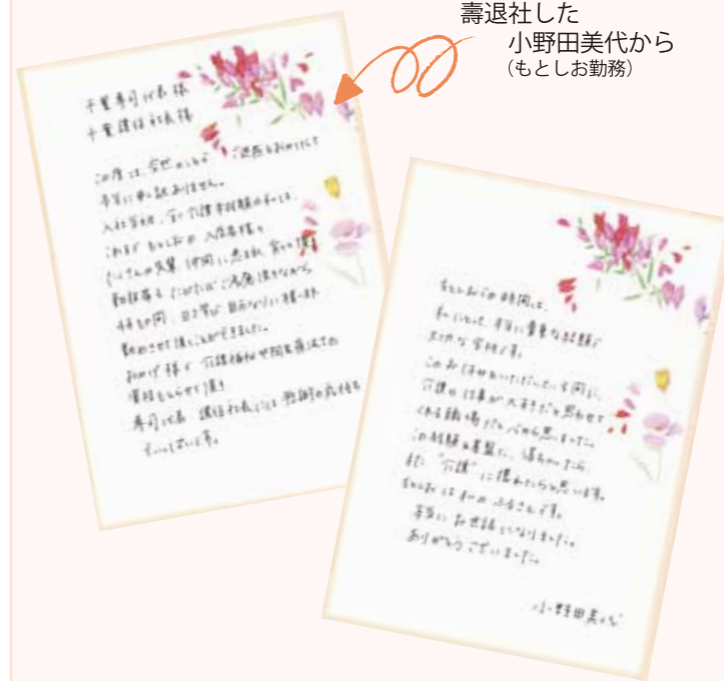 壽退社した
小野田美代から
(もとしお勤務)
千葉寿司代表様
千葉謙佳社長様
この度は、突然のことで ご迷惑をおかけして
本当に申し訳ありません。
入社当初、全く介護未経験の私は、
これまでもとしおの入居者様や
たくさんの先輩、仲間に恵まれ、
ご迷惑
日々学び 自分なりに
勤めさせて頂くことができました。
おかげ様で 介護福祉
資格もとらせて頂き
寿司代表、謙佳社長には 感謝の気持ちで
いっぱいです。
もとしおでの時間は、
私にとって、本当に貴重な経験で
大切な宝物です。
このお仕事をいただいている間に、
介護の仕事が大好きだと思わせて
くれる職場だと心から思いました。
この経験を基盤に、落ちついたら、
また "介護" に携われたらと思います。
もとしおは私のふるさとです。
本当に お世話になりました。
ありがとうございました。
小野田美代